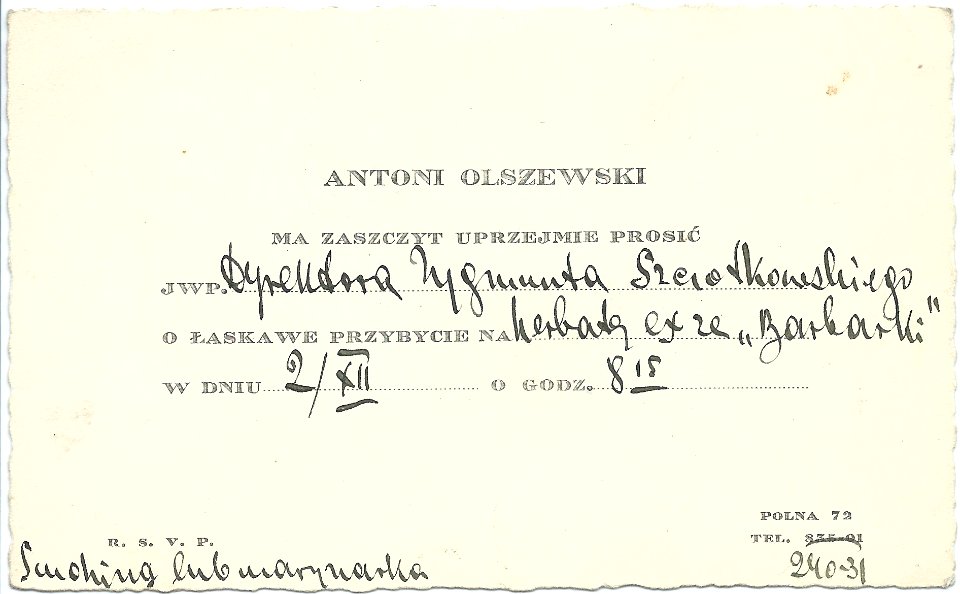 ANTONI OLSZEWSKI
MA ZASZCZYT UPRZEJMIE PROSIĆ
JWP. Dyrektora Zygmunta Szciotkowskiego
O ŁASKAWE PRZYBYCIE NA herbatę ex re „Barbarki"
W DNIU 2/XII O GODZ. 8 15
POLNA 72
R. S. V. P. TEL. 835-01
Smoking lub marynarka 240-31